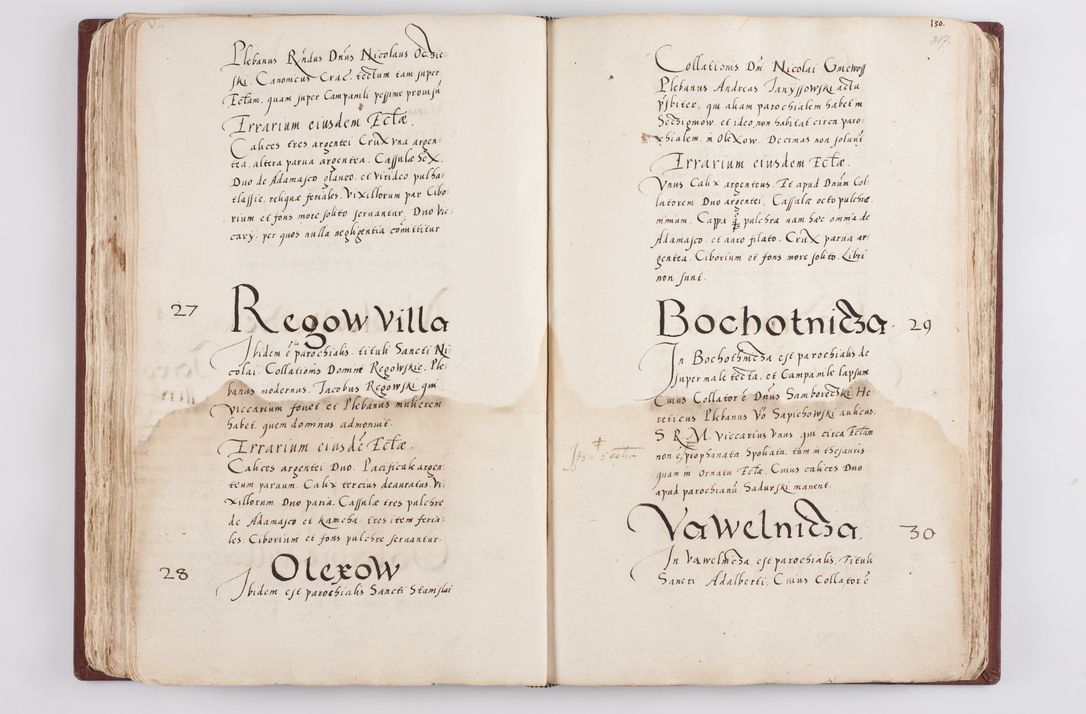 Plebanus Rndus Dnus Nicolaus Ocһie-
ski. Canonicus Crac. tectum tam super
Ecłam, quam super Campanili pessime prouisū
Errarium eiusdem Ecłæ.
Calices tres argentei. Crux vna argen-
tea, altera parua argentea. Cassulæ sex.
Duo de Adamasco et virideo
reliquæ feriales. Vixillorum par Cibo-
rium et fons more solito seruantur. Duo vic-
carÿ, per quos nulla negligentia comittitur
27
Regow villa
Ibidem ē parochialis, tituli Sancti Ni-
colai. Collationis Domine Regowskie, Ple-
banus modernus Iacobus Regowski qui
viccarium fouet et Plebanus mulierem
habet, quem dominus admonuit.
Errarium eiusdē Ecłæ.
Calices argentei Duo. Pacificale argen-
teum paruum. Calix tercius deauratus. Vi-
xillorum Duo paria. Cassulæ tres pulchre
de Adamasco et kamcha. tres item feria-
les. Ciborium et fons pulchre seruantur.
28
Olexow
Ibidem est parochialis Sancti Stanislai
130.
Collationis Dni Nicolai Gniewoss
Plebanus Andreas Ianyssowski actu
psbiter, qui aliam parochialem habet in
Secigniow, et ideo non habitat circa paro-
chialem in Olexow. Decimas non soluūt
Errarium eiusdem Ecłæ.
Vnus Calix argenteus. Et apud Dnum Col-
latorem Duo argentei. Cassulæ octo pulchre.
mmum. Cappa pulchra nam hæc omnia de
Adamasco, et auro filato. Crux parua ar-
gentea. Ciborium et fons more solito. Libri
non sunt.
Bochotnicza
29
In Bochothnicza est parochialis de
super male tecta, et Campanile lapsum
Cuius Collator ē Dnus Samborecski. He-
reticus Plebanus Vō Sapichowski aulicus
S R M. Viccarius vnus qui circa Ecłam
non ē, prophanata Spoliata, tum in thesauris
quam in ornatu Ecłæ. Cuius calices Duo
apud parochianū Sadurski manent.
Ipsa Ecclia
Vawelnicza
30
In Vawelnicza est parochialis, Tituli
Sancti Adalberti, Cuius Collator ē